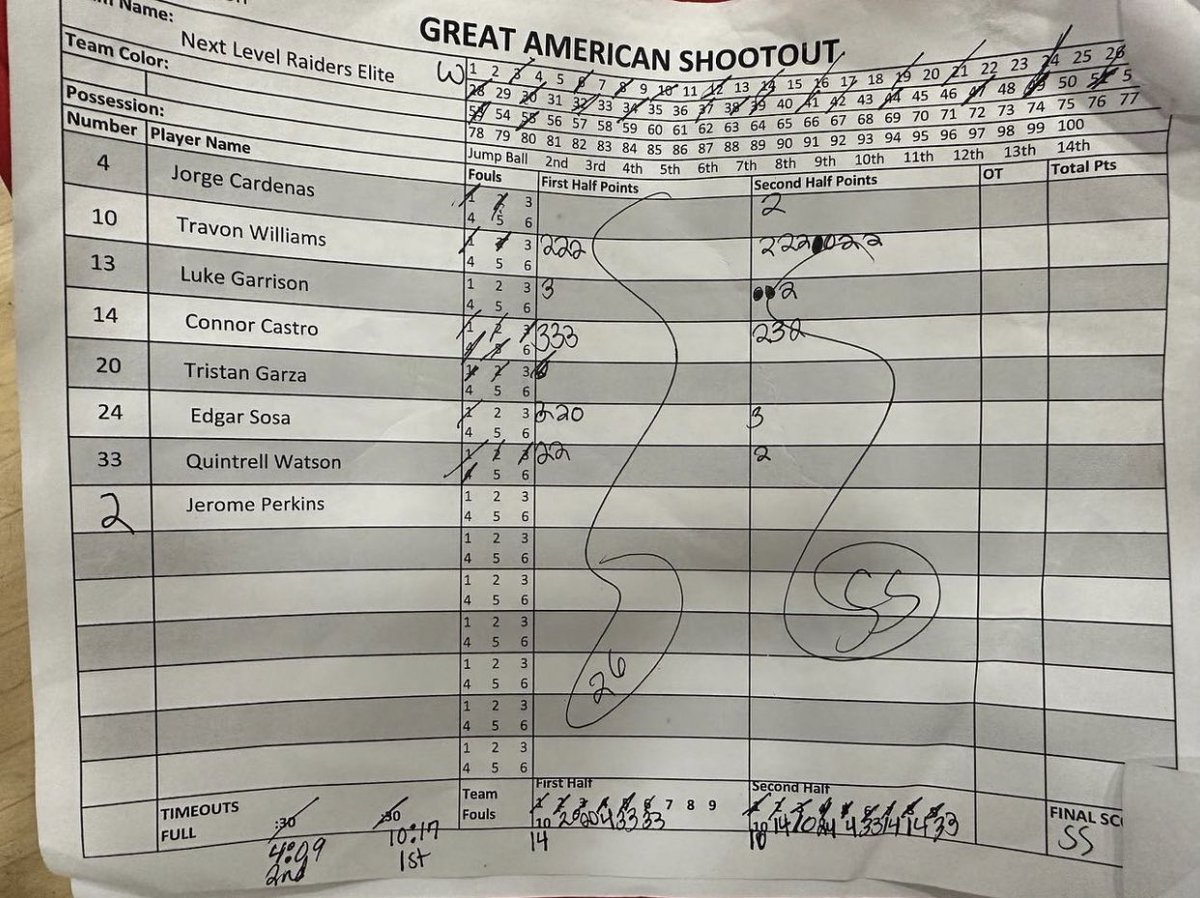 GREAT AMERICAN SHOOTOUT
Name:
Next Level Raiders Elite
W
Team Color:
1 2 3 4 5 6 7 8 9 10 11 12 13 14 15 16 17 18 19 20 21 22 23 24 25 26
28 29 30 31 32 33 34 35 36 37 38 39 40 41 42 43 44 45 46 47 48 49 50 51 5
53 54 55 56 57 58 59 60 61 62 63 64 65 66 67 68 69 70 71 72 73 74 75 76 77
78 79 80 81 82 83 84 85 86 87 88 89 90 91 92 93 94 95 96 97 98 99 100
Possession:
Jump Ball 2nd 3rd 4th 5th 6th 7th 8th 9th 10th 11th 12th 13th 14th
Number Player Name Fouls First Half Points Second Half Points OT Total Pts
4 Jorge Cardenas 1 2 3 2
4 5 6
10 Travon Williams 1 2 3 222 222 0 2 2
4 5 6
13 Luke Garrison 1 2 3 3 2
4 5 6
14 Connor Castro 1 2 3 333 232
4 5 6
20 Tristan Garza 1 2 3
4 5 6
24 Edgar Sosa 1 2 3 20 3
4 5 6
33 Quintrell Watson 1 2 3 22 2
4 5 6
2 Jerome Perkins 1 2 3
4 5 6
1 2 3
4 5 6
1 2 3
4 5 6
55
1 2 3
4 5 6
1 2 3
4 5 6
26
1 2 3
4 5 6
1 2 3
4 5 6
TIMEOUTS
FULL
:30 :30
4:09 10:17
2nd 1st
Team
Fouls
First Half
1 2 3 4 5 6 7 8 9
10 20 20 4 33 33
14
Second Half
1 2 3 4 5 6 7 8 9
14 10 24 4 33 14 14 33
10
FINAL SC
55